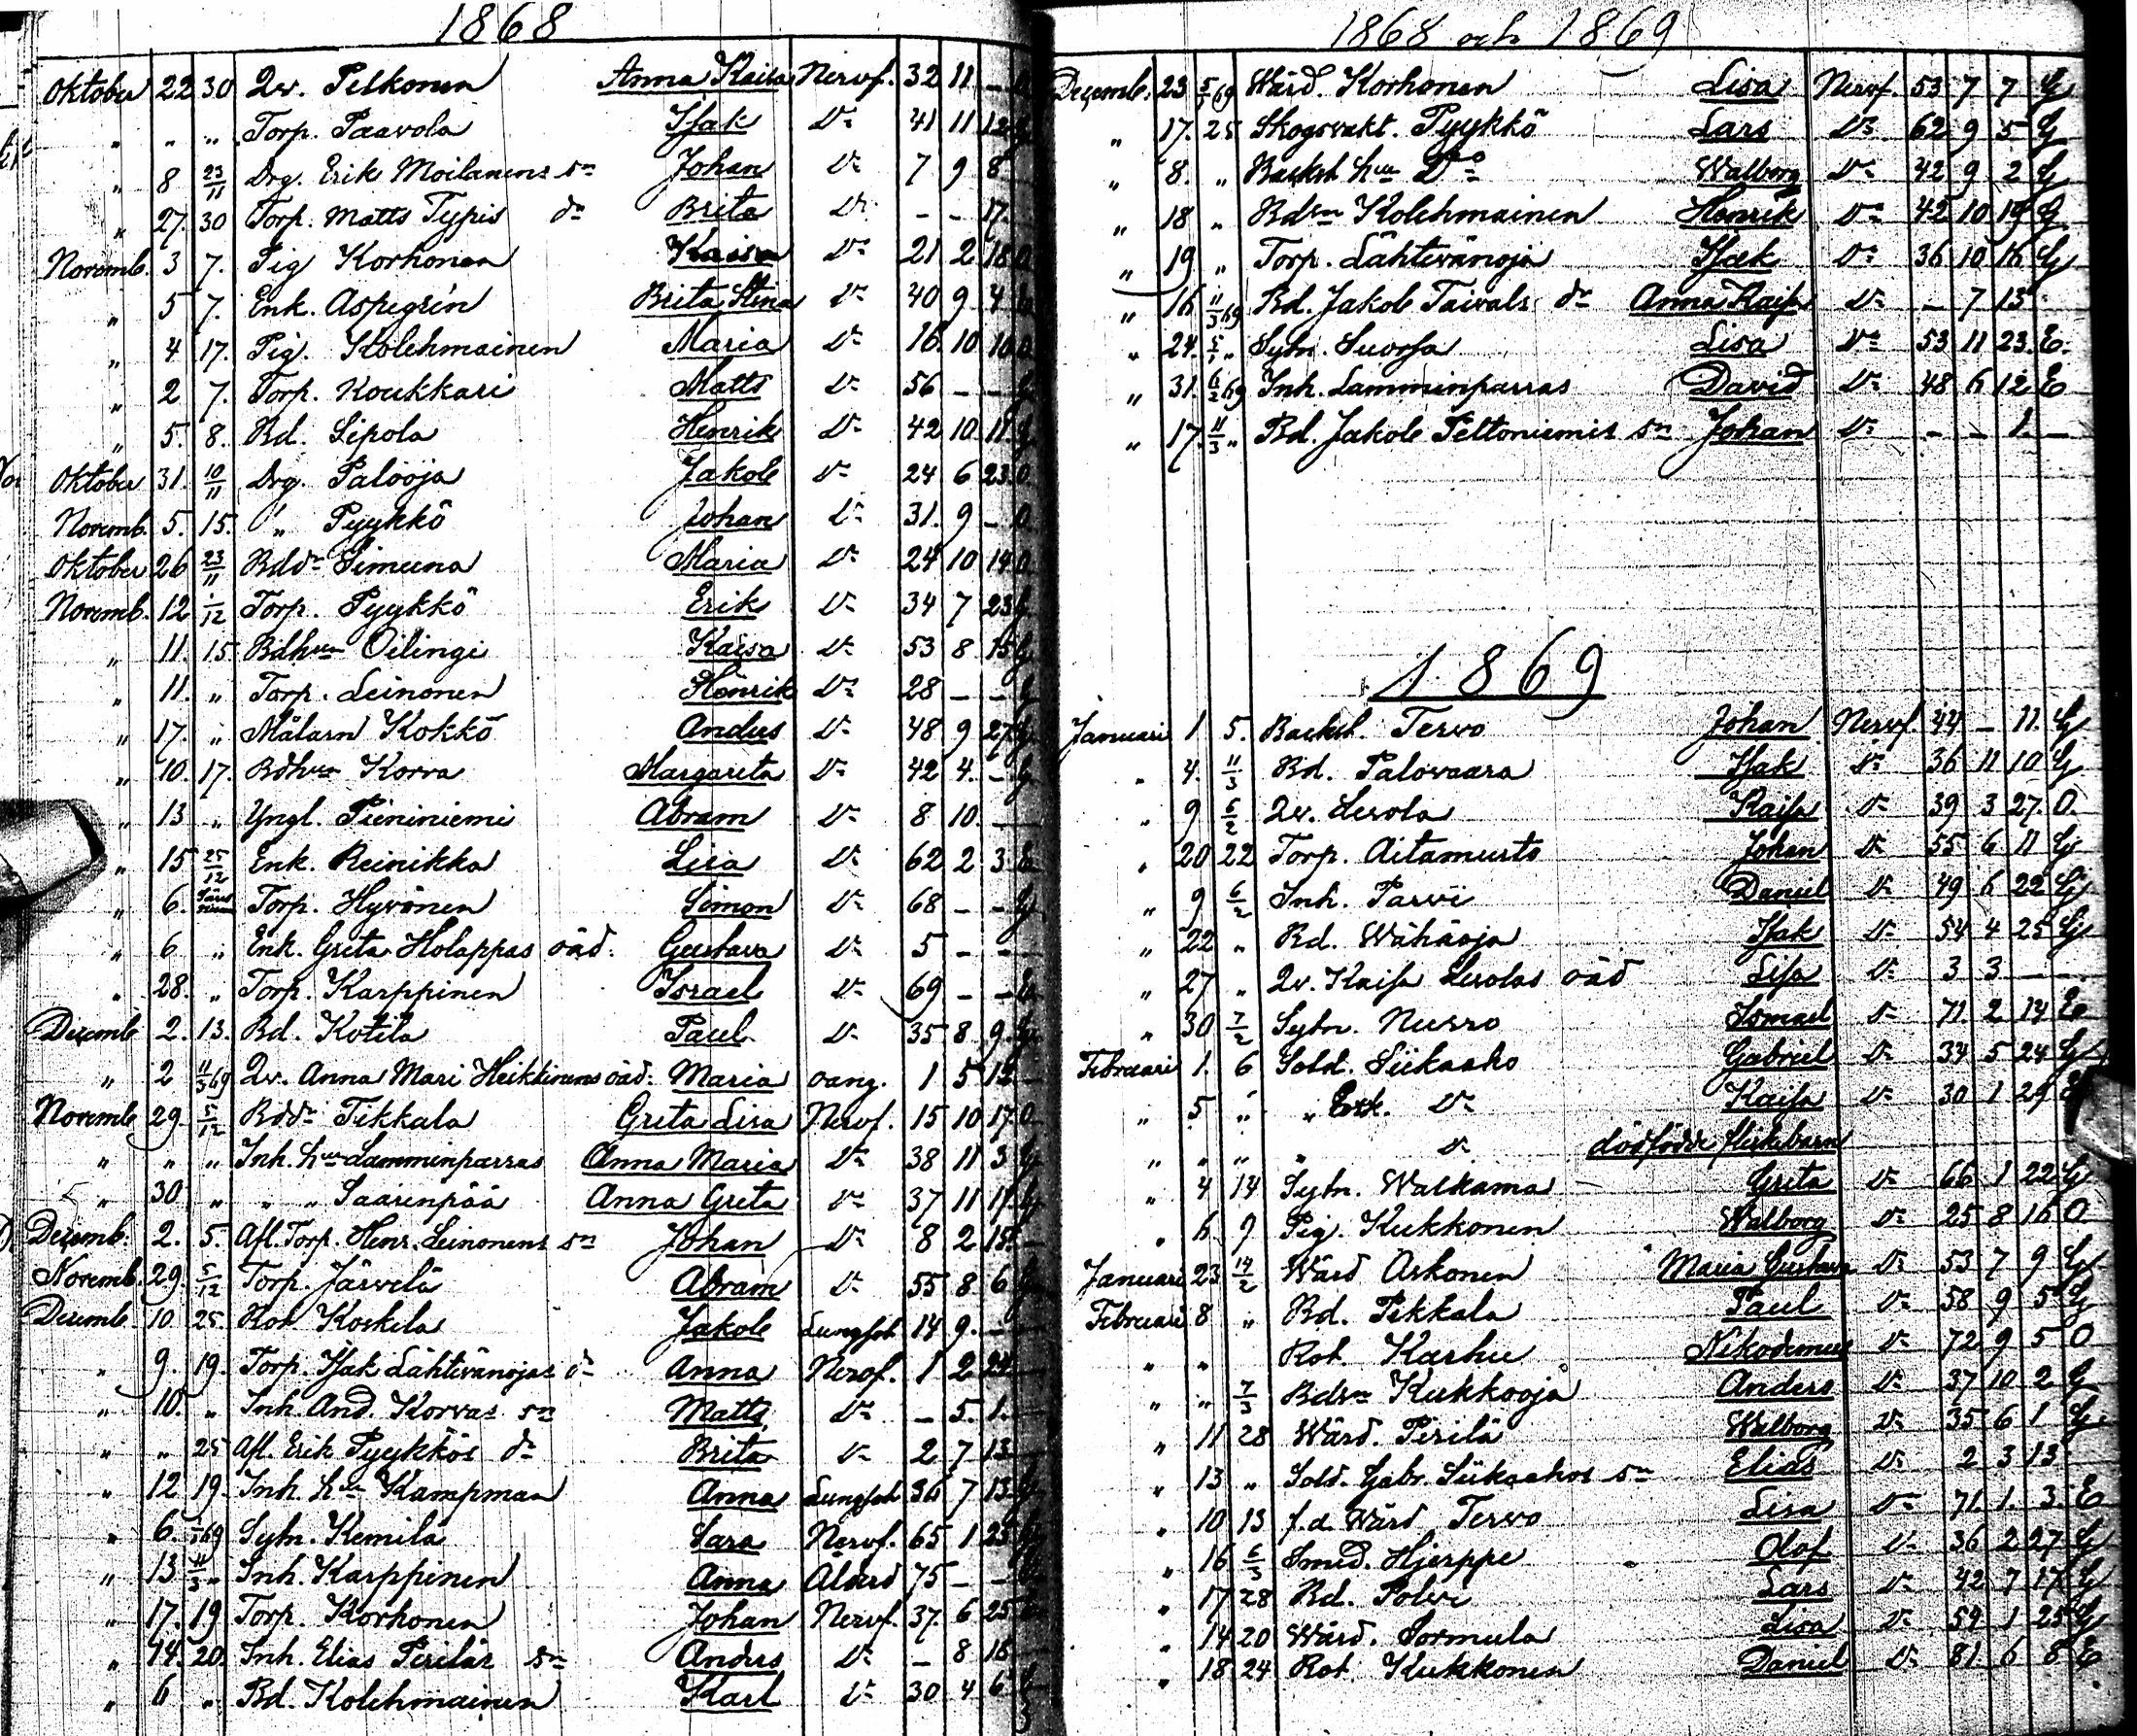 1868
Oktober 22 30 Qv. Pelkonen Anna Kaisa Nervf. 32 11 – O
" " " Torp. Paavola Isak Do 41 11 12 G
" 8 23/11 Drg. Erik Moilanens sn Johan Do 7 9 8
" 27. 30 Torp. Matts Typis dr Brita Do – – 17.
Novemb. 3 7. Pig Korhonen Kaisa Do 21 2 18 O
" 5 7. Enk. Aspegrén Brita Stina Do 40 9 4 E
" 4 17. Pig. Kolehmainen Maria Do 16. 10 10 O
" 2 7. Torp. Koukkari Matts Do 56 – – G
" 5. 8. Bd. Sipola Henrik Do 42 10. 11. G
Oktober 31. 10/11 Drg. Palooja Jakob Do 24 6 23. O
Novemb. 5. 15. " Pyykkö Johan Do 31. 9 – O
Oktober 26 23/11 Bddr Simuna Maria Do 24 10 14 O
Novemb. 12 1/12 Torp. Pyykkö Erik Do 34 7 23 G
" 11. 15 Bdhun Oilingi Kaisa Do 53 8 15 G
" 11. " Torp. Leinonen Henrik Do 28 – – G
" 17. " Målarn Kokkö Andus Do 48 9 27 G
" 10. 17. Bdhun Korva Margareta Do 42 4. – G
" 13 " Yngl. Pieniniemi Abram Do 8 10. –
" 15 25/12 Enk. Reinikka Lisa Do 62 2 3. E
" 6. Torp. Hyvönen Simon Do 68 – – G
" 6 " Enk. Greta Holappas oäd. Gustava Do 5 – –
" 28. " Torp. Karppinen Israel Do 69 – – E
Decemb 2. 13. Bd. Kotila Paul Do 35 8. 9. G
" 2 11/3 69 Qv. Anna Mari Heikkinens oäd. Maria oang. 1 5 12
Novemb 29. 5/12 Bddr Tikkala Greta Lisa Nervf. 15 10 17. O
" " " Inh. hun Lamminparras Anna Maria Do 38 11 3 G
" 30 " " " Saarenpää Anna Greta Do 37 11 11. G
Decemb. 2. 5. Afl. Torp. Henr. Leinonens sn Johan Do 8 2 15. –
Novemb. 29. 5/12 Torp. Järvelä Abram Do 55 8 6 G
Decemb. 10 25. Rot. Koskela Jakob Lungsot 14 9. –
" 9. 19. Torp. Isak Lähtevänojas dr Anna Nervf. 1 2 24
" 10. " Inh. And. Korvas sn Matts Do – 5. 1.
" " 25 Afl. Erik Pyykkös dr Brita Do 2 7 13
" 12 19. Inh. hun Kampman Anna Lungsot 36 7 13. G
" 6. 69 Sytn. Kemilä Sara Nervf. 65 1 25 G
" 13 11/3 " Inh. Karppinen Anna Ålderd 75 – –
" 17. 19 Torp. Korhonen Johan Nervf. 37. 6 25
" 14. 20. Inh. Elias Perilär sn Anders Do – 8 16
" 6 " Bd. Kolehmainen Karl Do 30 4 6
1868 och 1869
Decemb. 23 5/1 69 Wärd. Korhonen Lisa Nervf. 53 7 7 G
" 17. 25 Skogsvakt. Pyykkö Lars Do 62 9 5 G
" 8. " Backst. hun Do Walborg Do 42 9 2 G
" 18 " Bdsn Kolehmainen Henrik Do 42 10 19 G
" 19 " Torp. Lähtevänoja Isak Do 36 10 16 G
" 16 11/3 69 Bd. Jakob Taivals dr Anna Kaisa Do – 7 13
" 24. 5/1 " Sytn. Suorsa Lisa Do 53 11 23. E.
" 31. 6/2 69 Inh. Lamminparras David Do 48 6 12 E
" 17. 11/3 " Bd. Jakob Peltoniemis sn Johan Do – – 1. –
1869
Januari 1 5. Backst. Tervo Johan Nervf. 44 – 11. G
" 4. 11/3 Bd. Palovaara Isak Do 36 11 10 G
" 9 6/2 Qv. Lerola Kaisa Do 39 3 27. O.
" 20 22 Torp. Aitamurto Johan Do 55 6 11 G
" 9 6/2 Inh. Parvi Daniel Do 49 6 22 G
" 22 " Bd. Wähäoja Isak Do 54 4 25 G
" 27 " Qv. Kaisa Lerolas oäd Lisa Do 3 3 –
" 30 7/2 Sytn. Nusso Ismael Do 71. 2 14 E
Februari 1. 6 Sold. Siikaaho Gabriel Do 34 5 24 G
" 5 " " Enk. Do Kaisa Do 30 1 29 E
" " " " Do dödfödde flickebarn
" 4 14 Sytn. Walkama Greta Do 66 1 22 G
" 6 9 Pig. Kukkonen Walborg Do 25 8 16 O
Januari 23 14/2 Wärd Askonen Maria Gustava Do 53 7 9 G
Februari 8 " Bd. Pikkala Paul Do 58 9 5 G
" " Rot. Karhu Nikodemus Do 72 9 5 O
" " 7/3 Bdsn Kukkooja Anders Do 37 10 2 G
" 11 28 Wärd. Pirilä Walborg Do 35 6 1 G.
" 13 " Sold. Gabr. Siikaahos sn Elias Do 2 3 13
" 10 13 f.d. Wärd Tervo Lisa Do 71. 1. 3. E
" 16 6/3 Smed. Hjerppe Olof Do 36 2 27 G
" 17 28 Bd. Polvi Lars Do 42 7 17 G
" 14 20 Wärd. Sormula Lisa Do 54 1 25 G
" 18 24 Rot. Kukkonen Daniel Do 81. 6 8 E